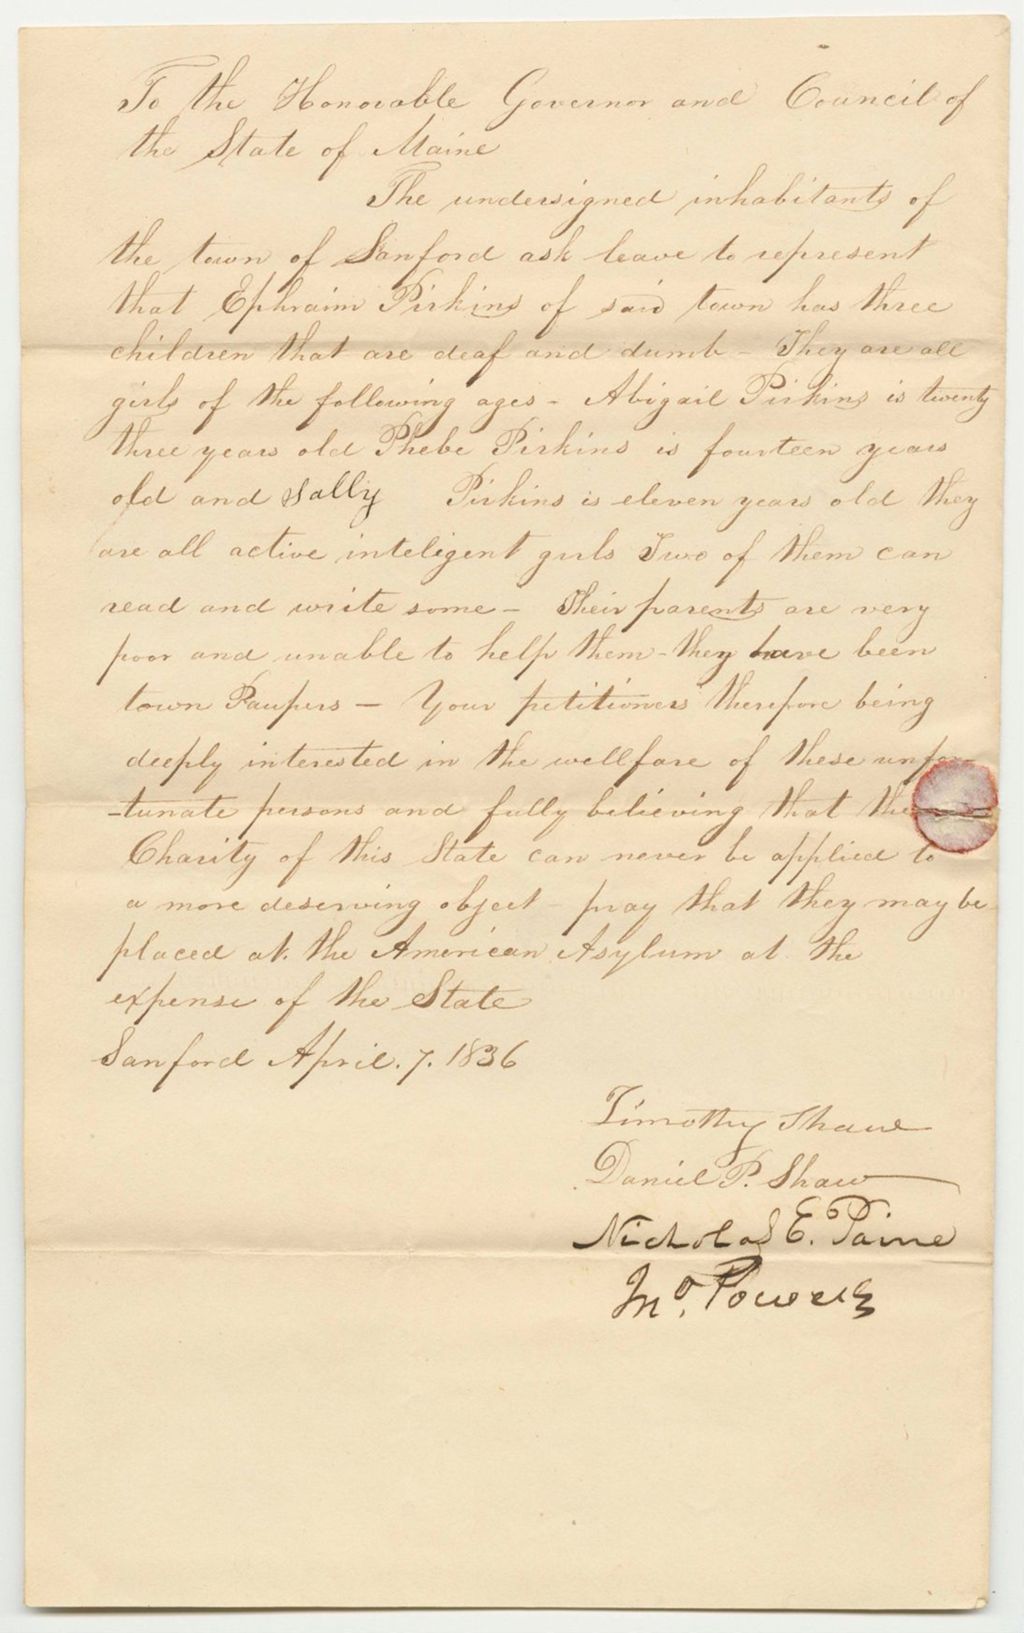 To the Honorable Governor and Council of
the State of Maine
The undersigned inhabitants of
the town of Sanford ask leave to represent
that Ephraim Pirkins of said town has three
children that are deaf and dumb - They are all
girls of the following ages - Abigail Pirkins is twenty
three years old Phebe Pirkins is fourteen years
old and Sally Pirkins is eleven years old they
are all active inteligent girls Two of them can
read and write some - Their parents are very
poor and unable to help them - they have been
town Paupers - Your petitioners therefore being
deeply interested in the wellfare of these unfor
-tunate persons and fully believing that the
Charity of this State can never be applied to
a more deserving object - pray that they may be
placed at the American Asylum at the
expense of the State
Sanford April. 7. 1836
Timothy Shaw
Daniel P. Shaw
Nicholas E. Paine
Jno. Powers